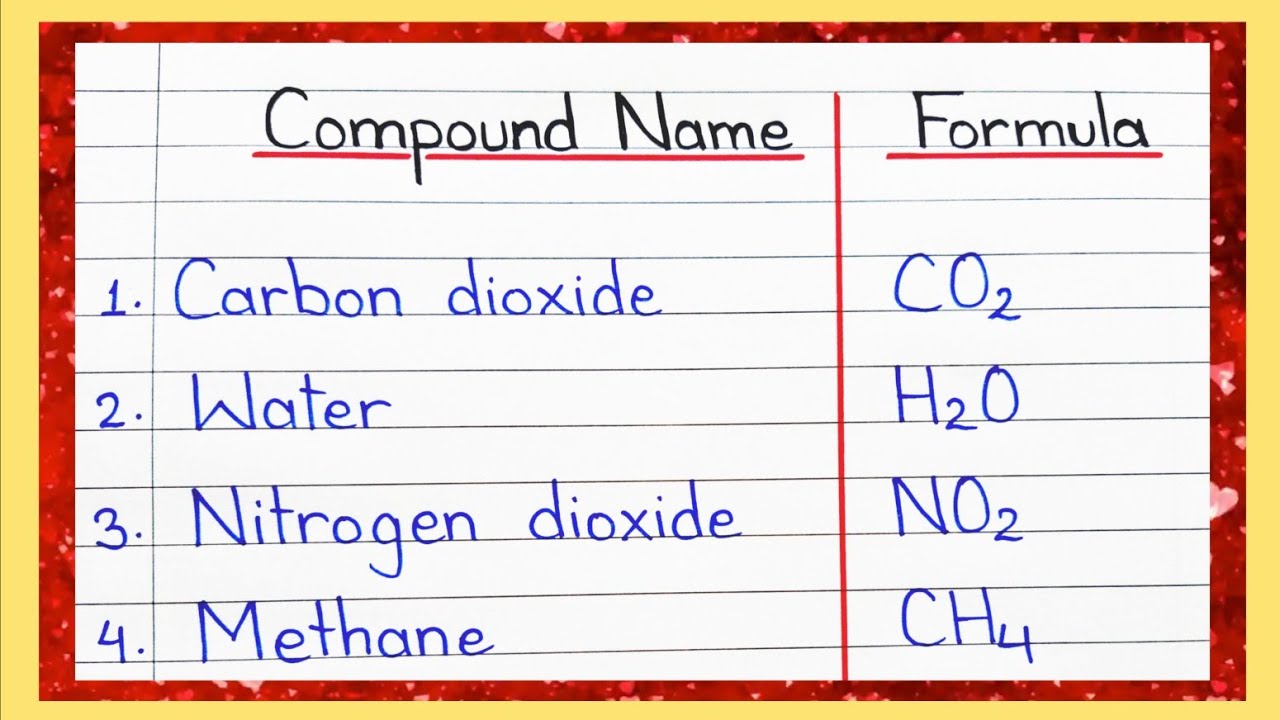 Compound Name Formula
1. Carbon dioxide CO₂
2. Water H₂O
3. Nitrogen dioxide NO₂
4. Methane CH₄